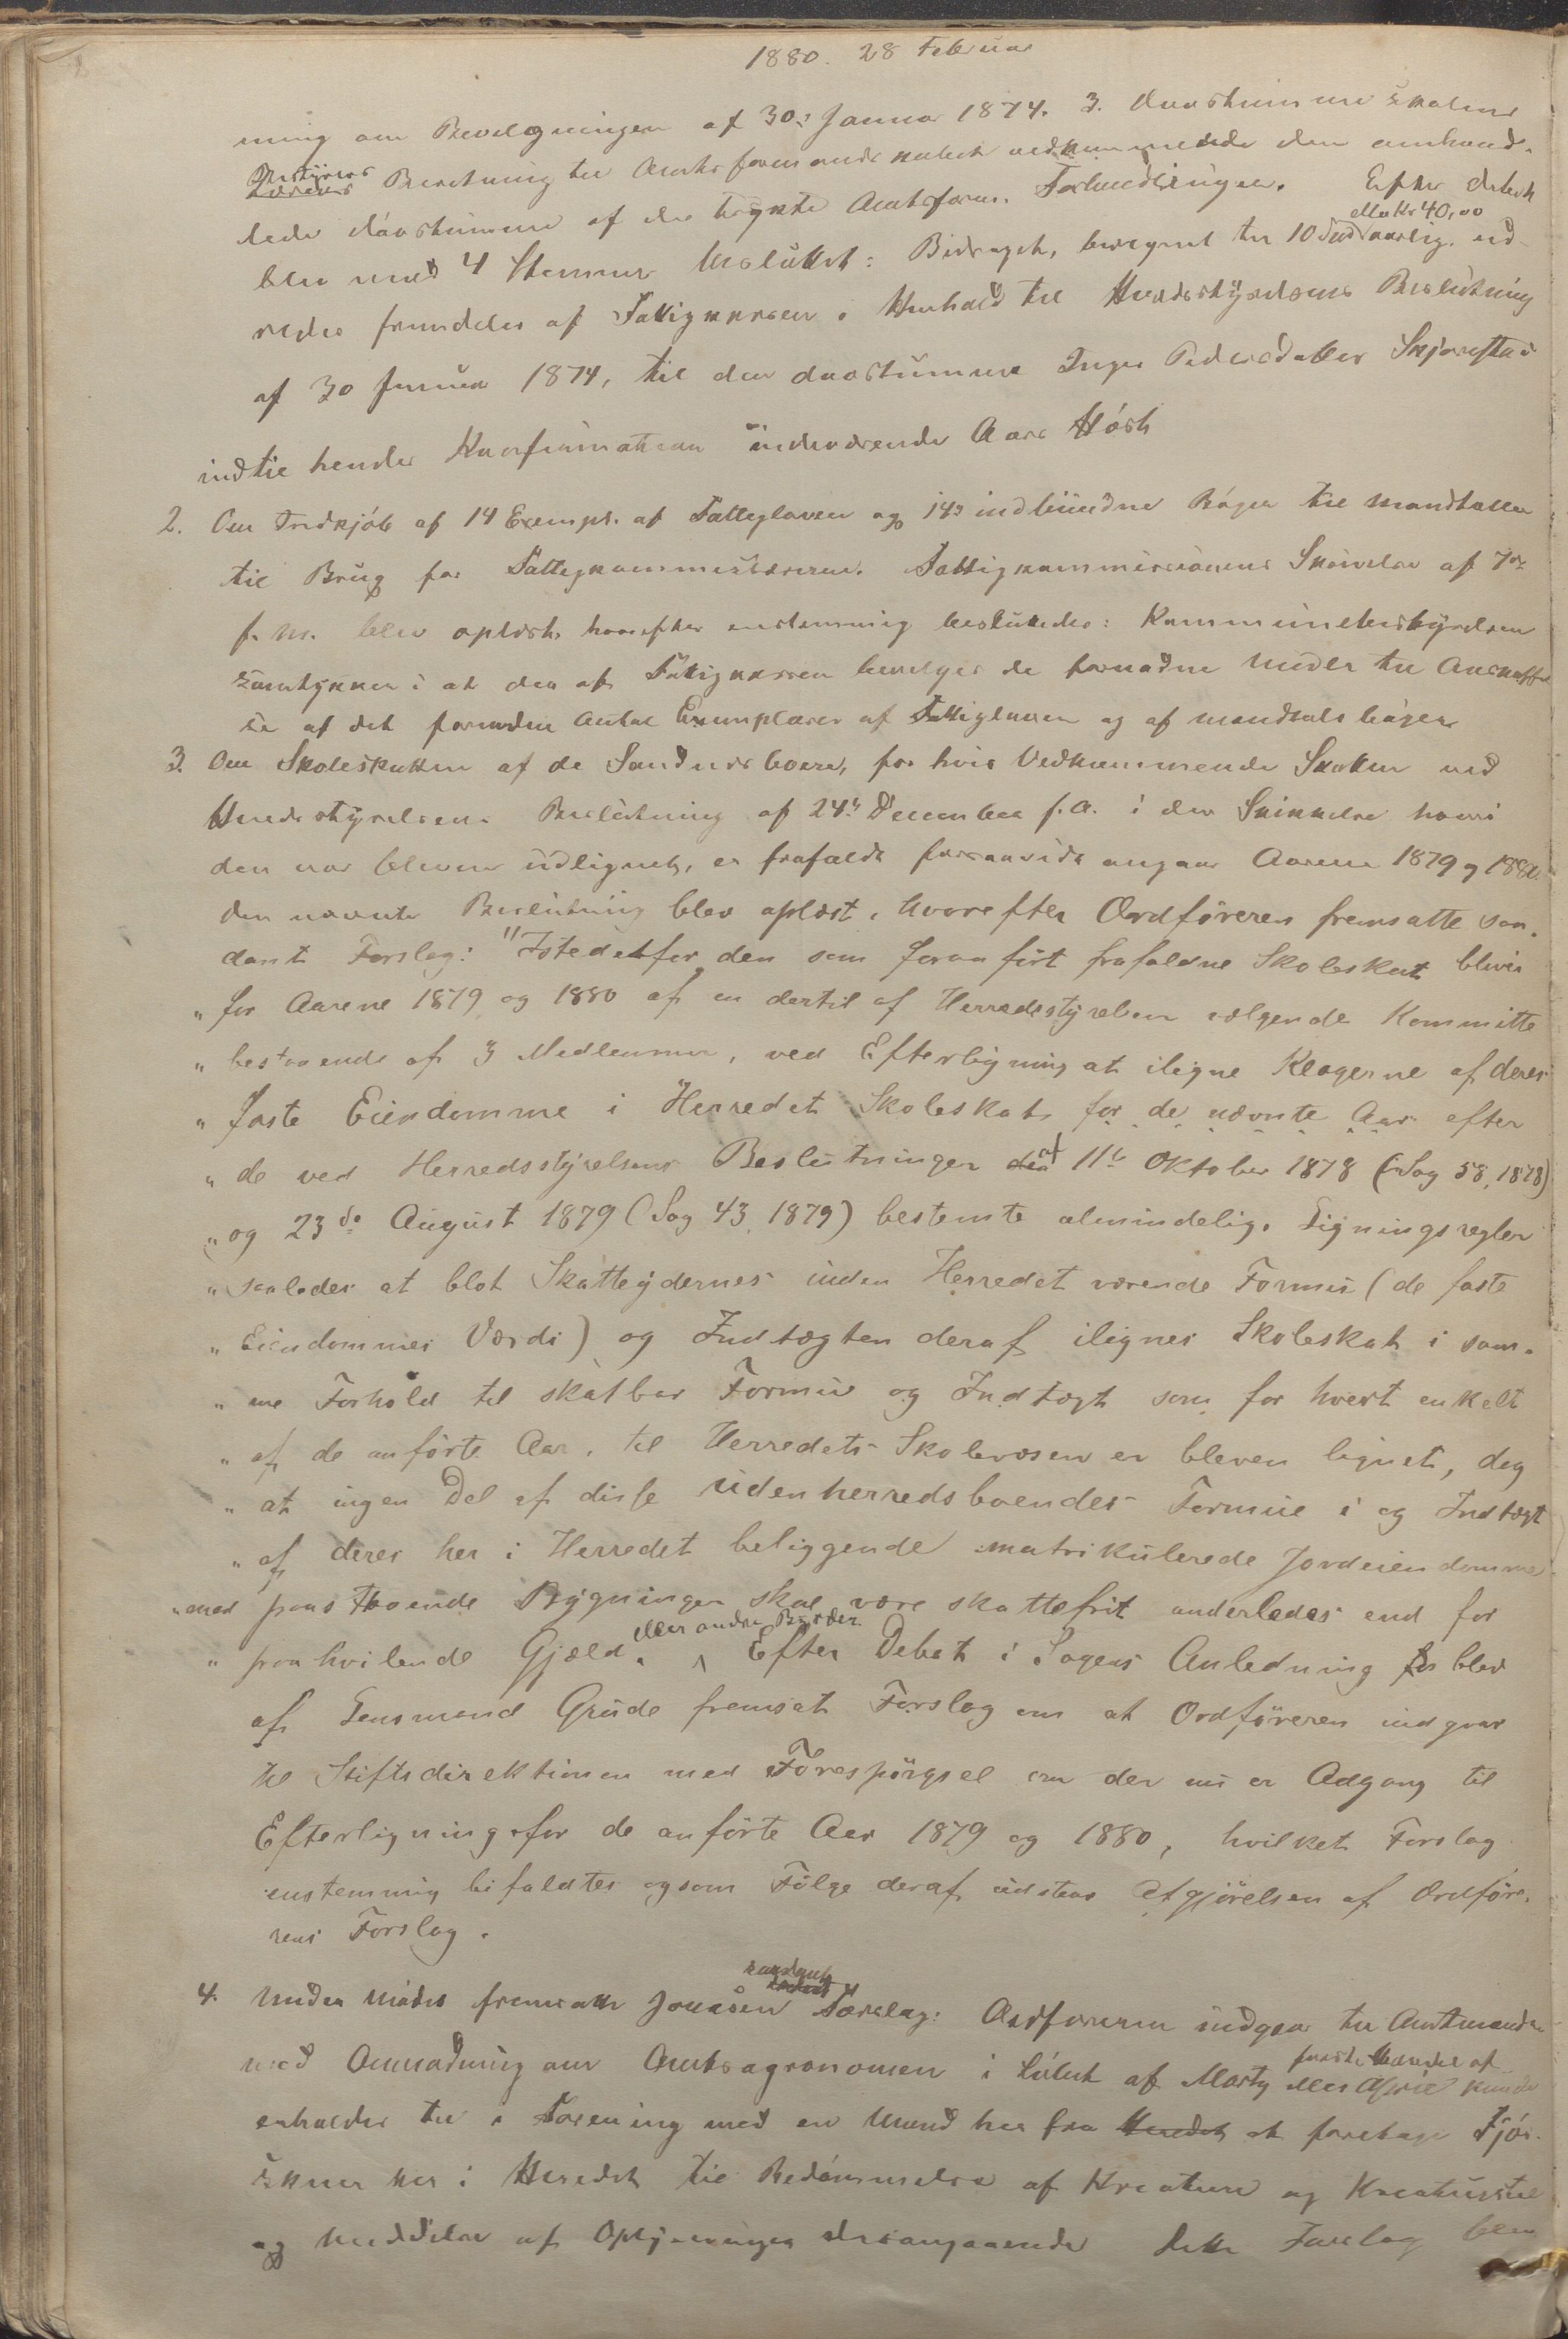 1880. 28 Februar
ning om Bevilgningen af 30. Januar 1874. 3. Døvstumme Skolens
Bestyrers Beretning til Amtsformandskabet vedkommende den omhand-
lede døvstumme af de trykte Amtsform. Forhandlinger. Efter Debat
eller Kr 40,00
blev med 4 Stemmer besluttet: Bidraget, beregnet til 10 Spd aarlig, ud-
redes fremdeles af Fattigkassen i Henhold til Herredsstyrelsens Beslutning
af 30 Januar 1874, til den døvstumme Inger Pedersdatter Skjørestad
indtil hendes Konfirmation indeværende Aars Høst
2. Om Indkjøb af 14 Exempl. af Fattigloven og 14 indbundne Bøger til Mandtaller
til Brug for Fattigkommissærerne. Fattigkommissionens Skrivelse af 7de
f. M. blev oplæst, hvorefter enstemmig besluttedes: Kommunebestyrelsen
samtykker i at der af Fattigkassen bevilges de fornødne Midler til Anskaffel-
se af det fornødne Antal Exemplarer af Fattigloven og af Mandtalsbøger
3. Om Skoleskatten af de Sandnesboere, for hvis Vedkommende Skatten ved
Herredsstyrelsens Beslutning af 24de December f. A. i den Skikkelse hvori
den var bleven udlignet, er frafaldt forsaavidt angaar Aarene 1879 og 1880.
Den nævnte Beslutning blev oplæst, hvorefter Ordføreren fremsatte saa-
dant Forslag: "Istedetfor den som foranført frafaldne Skoleskat bliver
" for Aarene 1879 og 1880 af en dertil af Herredsstyrelsen vælgende Kommitte
" bestaaende af 3 Medlemmer, ved Efterligning at iligne Klagerne af deres
" faste Eiendomme i Herredet Skoleskat for de nævnte Aar efter
" de ved Herredsstyrelsens Beslutninger af 11te Oktober 1878 (Sag 58, 1878)
" og 23de August 1879 (Sag 43, 1879) bestemte almindelig. Ligningsregler
" saaledes at blot Skatteydernes inden Herredet værende Formue (de faste
" Eiendommes Værdi) og Indtægten deraf ilignes Skoleskat i sam-
" me Forhold til skatbar Formue og Indtægt som for hvert enkelt
" af de anførte Aar, til Herredets Skolevæsen er bleven lignet, dog
" at ingen Del af disse udenherredsboendes Formue i og Indtægt
" af deres her i Herredet beliggende matrikulerede Jordeiendomme
" med paastaaende Bygninger skal være skattefrit anderledes end for
eller andre Byrder.
" paahvilende Gjæld. Efter Debat i Sagens Anledning blev
af Lensmand Grude fremsat Forslag om at Ordføreren indgaar
til Stiftsdirektionen med Forespørgsel om der nu er Adgang til
Efterligning for de anførte Aar 1879 og 1880, hvilket Forslag
enstemmig bifaldtes og som Følge deraf udstaar Afgjørelsen af Ordføre-
rens Forslag.
saadant
4. Under Mødet fremsatte Jonasen Forslag: Ordføreren indgaar til Amtmanden
første Halvdel af
med Anmodning om Amtsagronomen i Løbet af Marts eller April kunde
erholdes til i Forening med en Mand her fra Herredet at foretage Fjøs-
skuer her i Herredet til Bedømmelse af Kreature og Kreaturstel
og Meddelse af Oplysninger desangaaende Dette Forslag blev